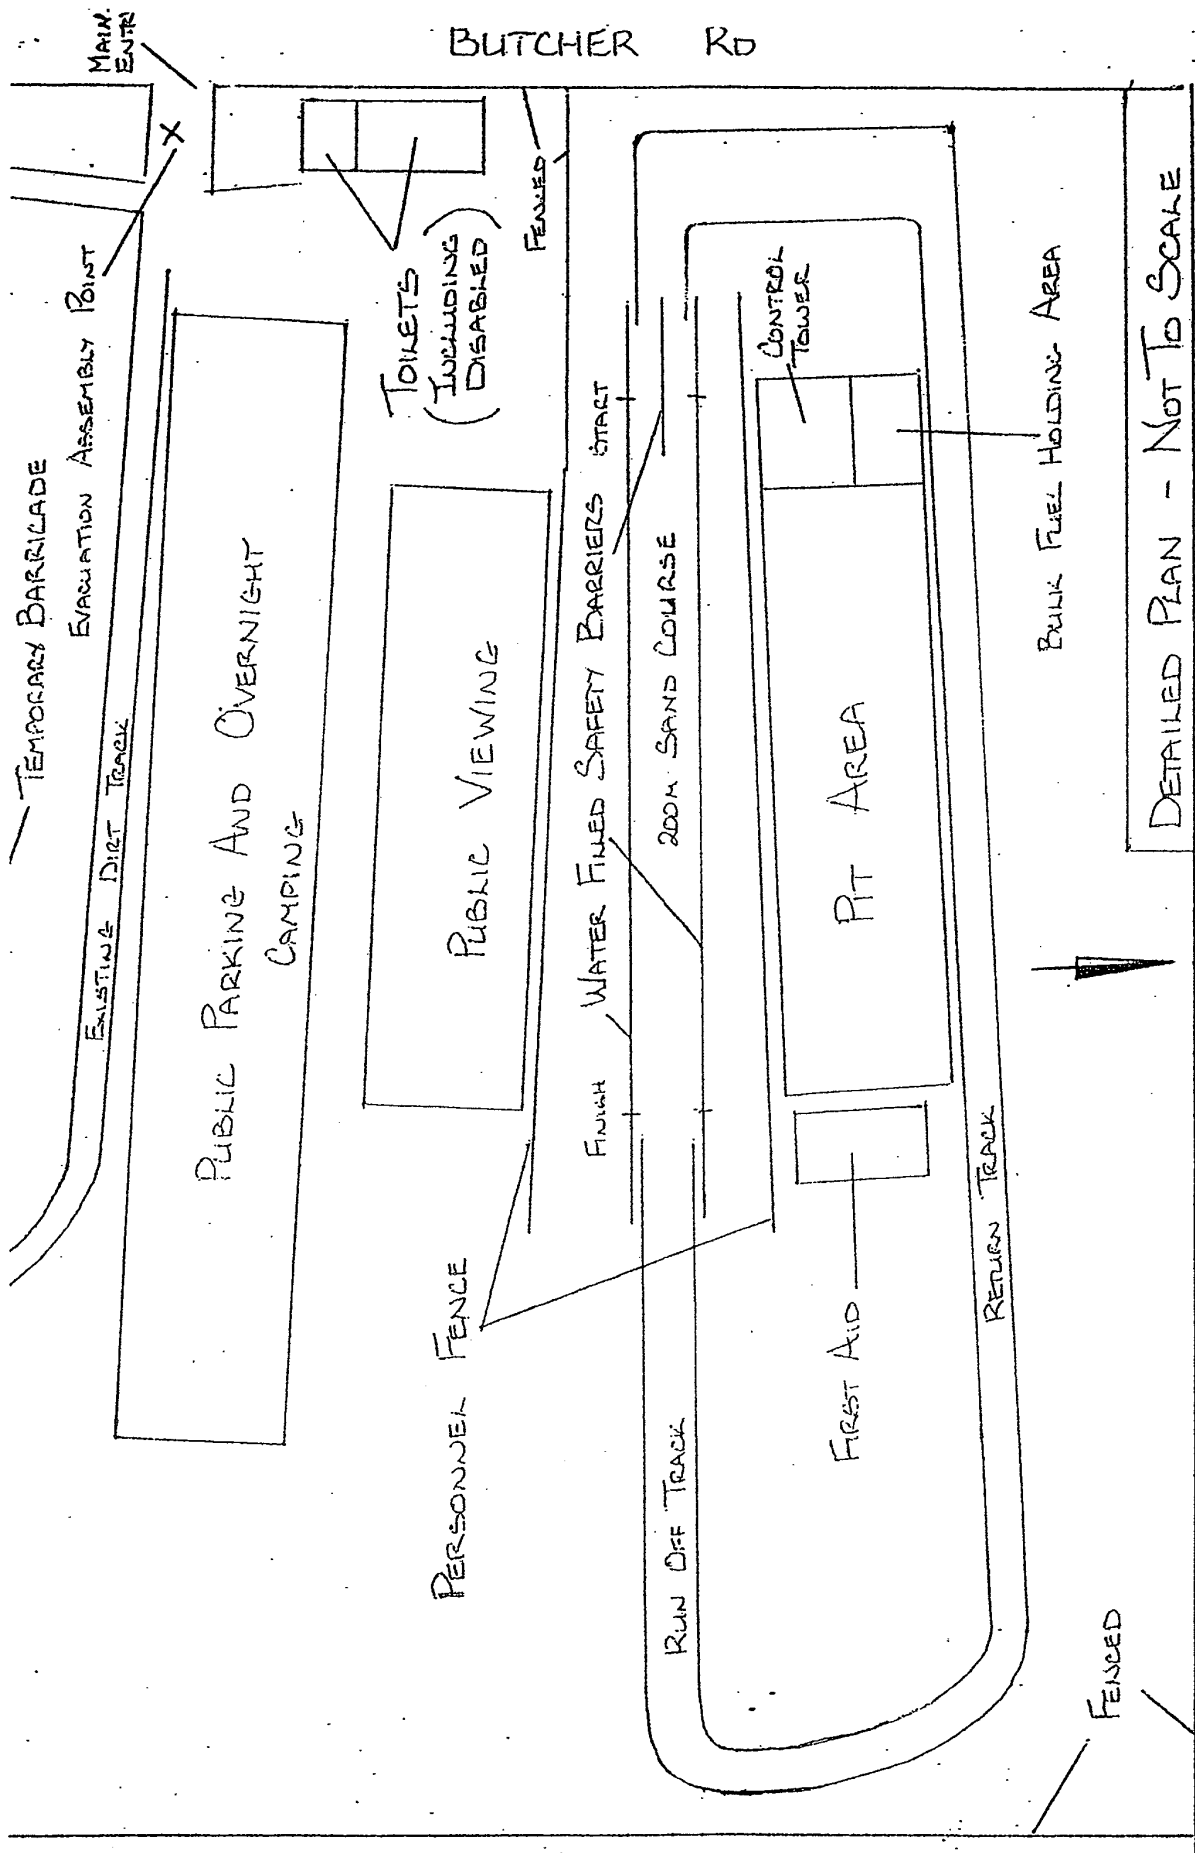 BUTCHER RD
MAIN
ENTRY
TEMPORARY BARRICADE
EVACUATION ASSEMBLY POINT
EXISTING DIRT TRACK
PUBLIC PARKING AND OVERNIGHT
CAMPING
TOILETS
(INCLUDING
DISABLED)
FENCED
PUBLIC VIEWING
PERSONNEL FENCE
START
WATER FILLED SAFETY BARRIERS
FINISH
200M SAND COURSE
RUN OFF TRACK
CONTROL
TOWER
PIT AREA
FIRST AID
RETURN TRACK
BULK FUEL HOLDING AREA
FENCED
DETAILED PLAN - NOT TO SCALE